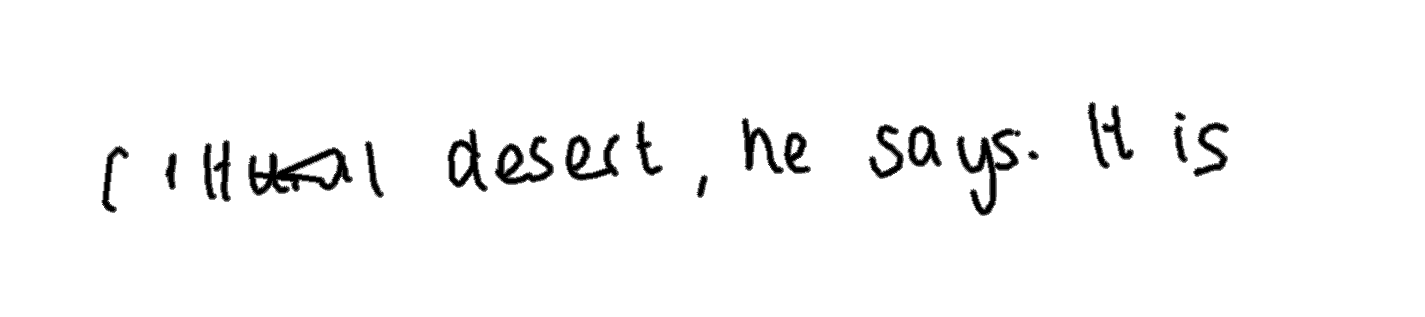 cultural desert, he says. It is